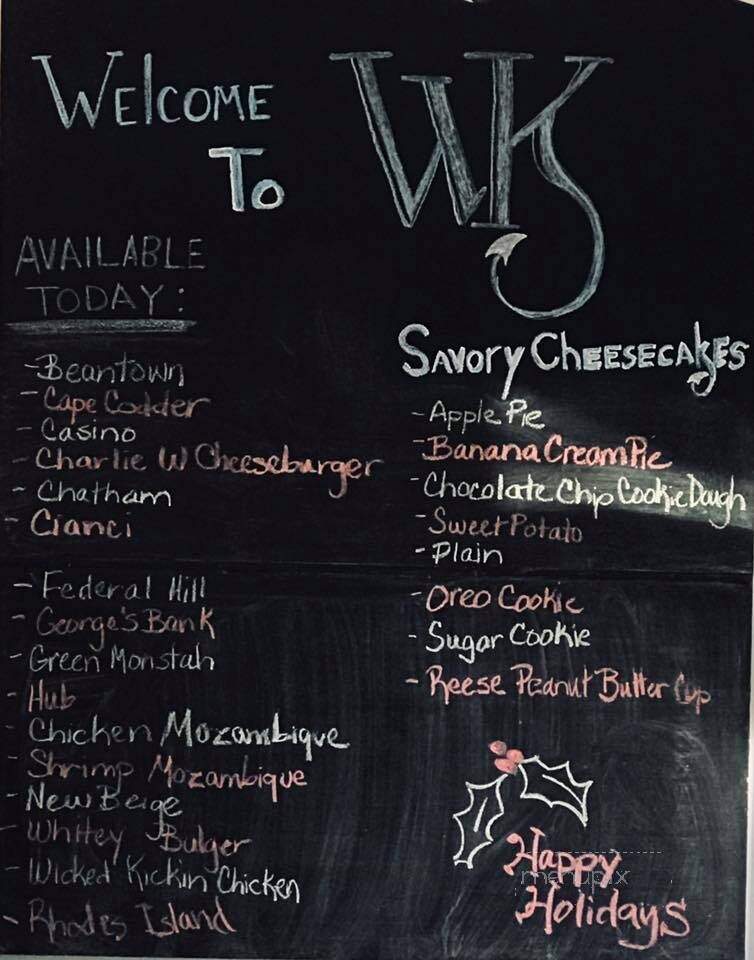 Welcome
To
WK
Available
Today:
- Beantown
- Cape Codder
- Casino
- Charlie W Cheeseburger
- Chatham
- Cianci
- Federal Hill
- George's Bank
- Green Monstah
- Hub
- Chicken Mozambique
- Shrimp Mozambique
- New Beige
- Whitey Bulger
- Wicked Kickin Chicken
- Rhodes Island
Savory Cheesecakes
- Apple Pie
- Banana Cream Pie
- Chocolate Chip Cookie Dough
- Sweet Potato
- Plain
- Oreo Cookie
- Sugar Cookie
- Reese Peanut Butter Cup
Happy
menupix
Holidays